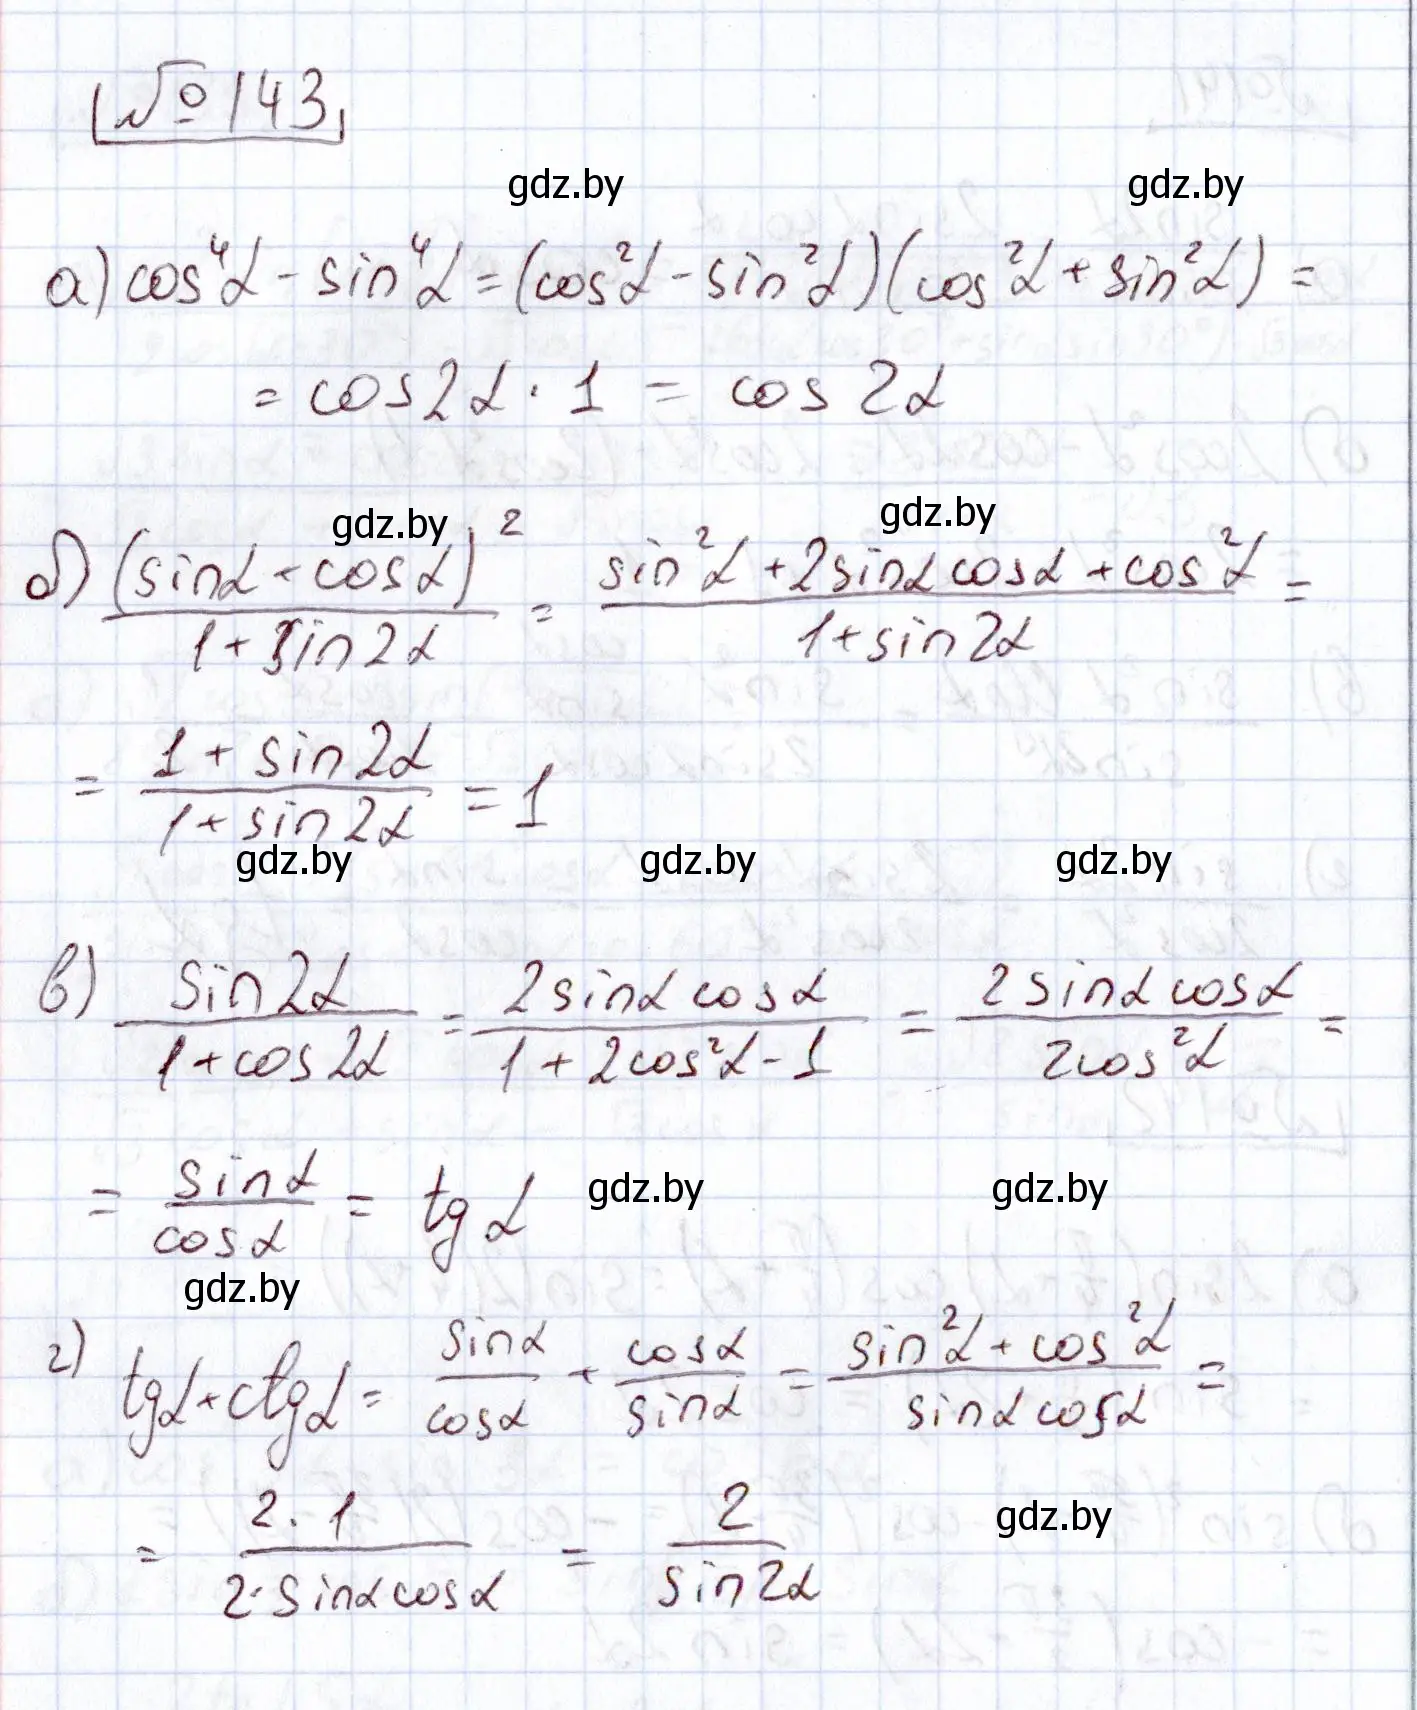 №143
gdz.by gdz.by
а) cos⁴α - sin⁴α = (cos²α - sin²α)(cos²α + sin²α) =
= cos2α · 1 = cos 2α
gdz.by gdz.by
б) (sinα + cosα)² / (1 + sin2α) = (sin²α + 2sinα cosα + cos²α) / (1 + sin2α) =
= (1 + sin2α) / (1 + sin2α) = 1
gdz.by gdz.by gdz.by
в) sin2α / (1 + cos2α) = 2sinα cosα / (1 + 2cos²α - 1) = 2sinα cosα / 2cos²α =
= sinα / cosα = tgα
gdz.by gdz.by
gdz.by
г) tgα + ctgα = sinα / cosα + cosα / sinα = (sin²α + cos²α) / (sinα cosα) =
= 2 · 1 / (2 · sinα cosα) = 2 / sin2α
gdz.by